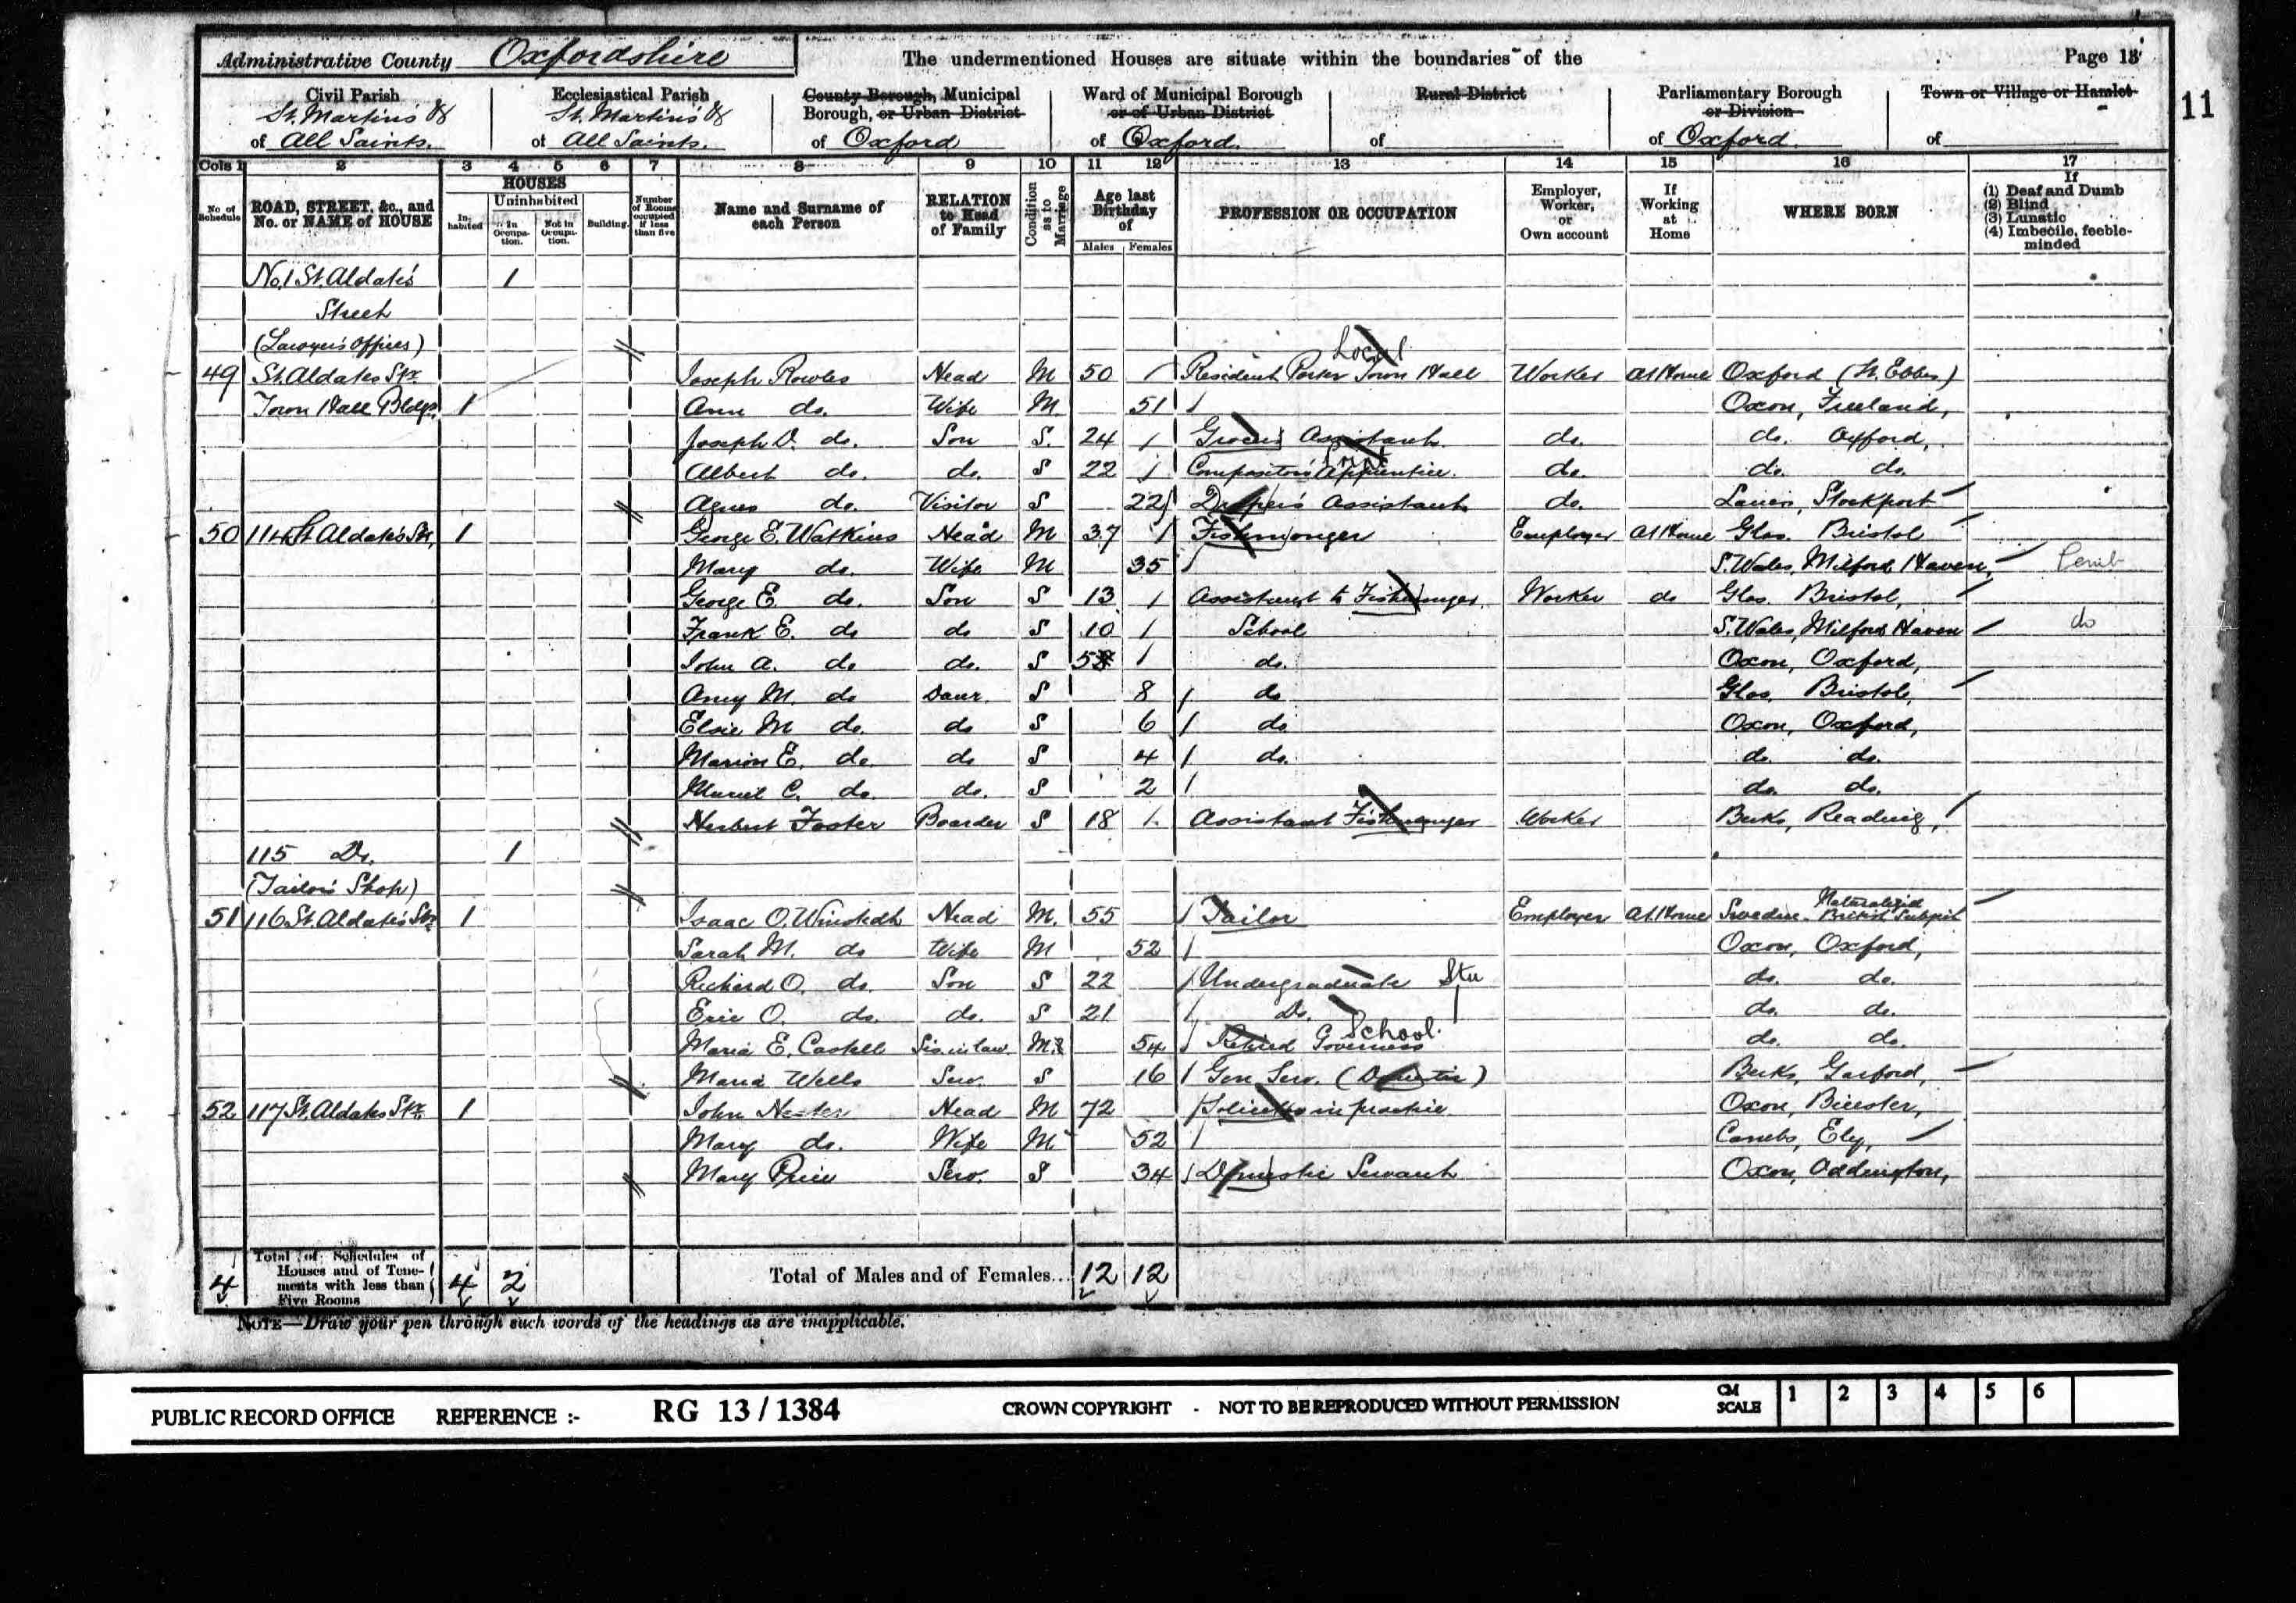 Administrative County Oxfordshire The undermentioned Houses are situate within the boundaries of the Page 13
11
Civil Parish Ecclesiastical Parish County Borough, Municipal Ward of Municipal Borough Rural District Parliamentary Borough Town or Village or Hamlet
St. Martin's & St. Martin's & Borough, or Urban District or of Urban District or Division
of All Saints. of All Saints. of Oxford of Oxford. of of Oxford. of
Cols 1 2 3 4 5 6 7 8 9 10 11 12 13 14 15 16 17
No. of Schedule ROAD, STREET, &c., and No. or NAME of HOUSE HOUSES Inhabited Uninhabited In Occupation. Not in Occupation. Building. Number of Rooms occupied if less than five Name and Surname of each Person RELATION to Head of Family Condition as to Marriage Age last Birthday of Males Females PROFESSION OR OCCUPATION Employer, Worker, or Own account If Working at Home WHERE BORN If (1) Deaf and Dumb (2) Blind (3) Lunatic (4) Imbecile, feeble-minded
No. 1 St. Aldate's 1
Street
(Lawyer's Offices)
Local
49 St. Aldates Str. Joseph Rowles Head M 50 Resident Porter Town Hall Worker At Home Oxford (St. Ebbes)
Town Hall Bldgs. 1 Ann do. Wife M. 51 Oxon, Freeland,
Joseph D. do. Son S. 24 Grocers Assistant. do. do. Oxford,
Albert do. do. S 22 Compositors Apprentice. do. do. do.
Agnes do. Visitor S 22 Draper's Assistant do. Stockport
50 114 St. Aldate's Str, 1 George E. Watkins Head M 37 Fishmonger Employer At Home Glos. Bristol
Mary do. Wife M 35 S. Wales, Milford Haven, Pemb
George E. do. Son S 13 Assistant to Fishmonger. Worker do Glos. Bristol,
Frank E. do do S 10 School S. Wales, Milford Haven do
John A. do do. S 5 do. Oxon, Oxford,
Amy M. do Daur. S 8 do Glos. Bristol,
Elsie M do. do S 6 do Oxon, Oxford,
Marion E. do. do S 4 do. do. do.
Muriel C. do. do. S 2 do. do.
Herbert Foster Boarder S 18 Assistant Fishmonger Worker Berks, Reading,
115 Do. 1
(Tailor's Shop)
51 116 St. Aldate's Str 1 Isaac O. Winstedh Head M. 55 Tailor Employer At Home Sweden Naturalized British Subject
Sarah M. do Wife M 52 Oxon, Oxford,
Richard O. do. Son S 22 Undergraduate Stu do. do.
Eric O. do. do. S 21 Do. do. do.
School.
Maria E. Castell Sis. in law. 54 Retired Governess do. do.
Maria Wells Serv. S 16 Gen Serv. (Domestic) Berks, Garford,
52 117 St. Aldates Str. 1 John Head M 72 Solicitor in practice Oxon, Bicester,
Mary do. Wife M 52 Cambs, Ely,
Mary Price Serv. S 34 Domestic Servant Oxon, Oddington,
4 Total of Schedules of Houses and of Tenements with less than Five Rooms 4 2 Total of Males and of Females... 12 12
NOTE—Draw your pen through such words of the headings as are inapplicable.
PUBLIC RECORD OFFICE REFERENCE :- RG 13 / 1384 CROWN COPYRIGHT - NOT TO BE REPRODUCED WITHOUT PERMISSION CM SCALE 1 2 3 4 5 6